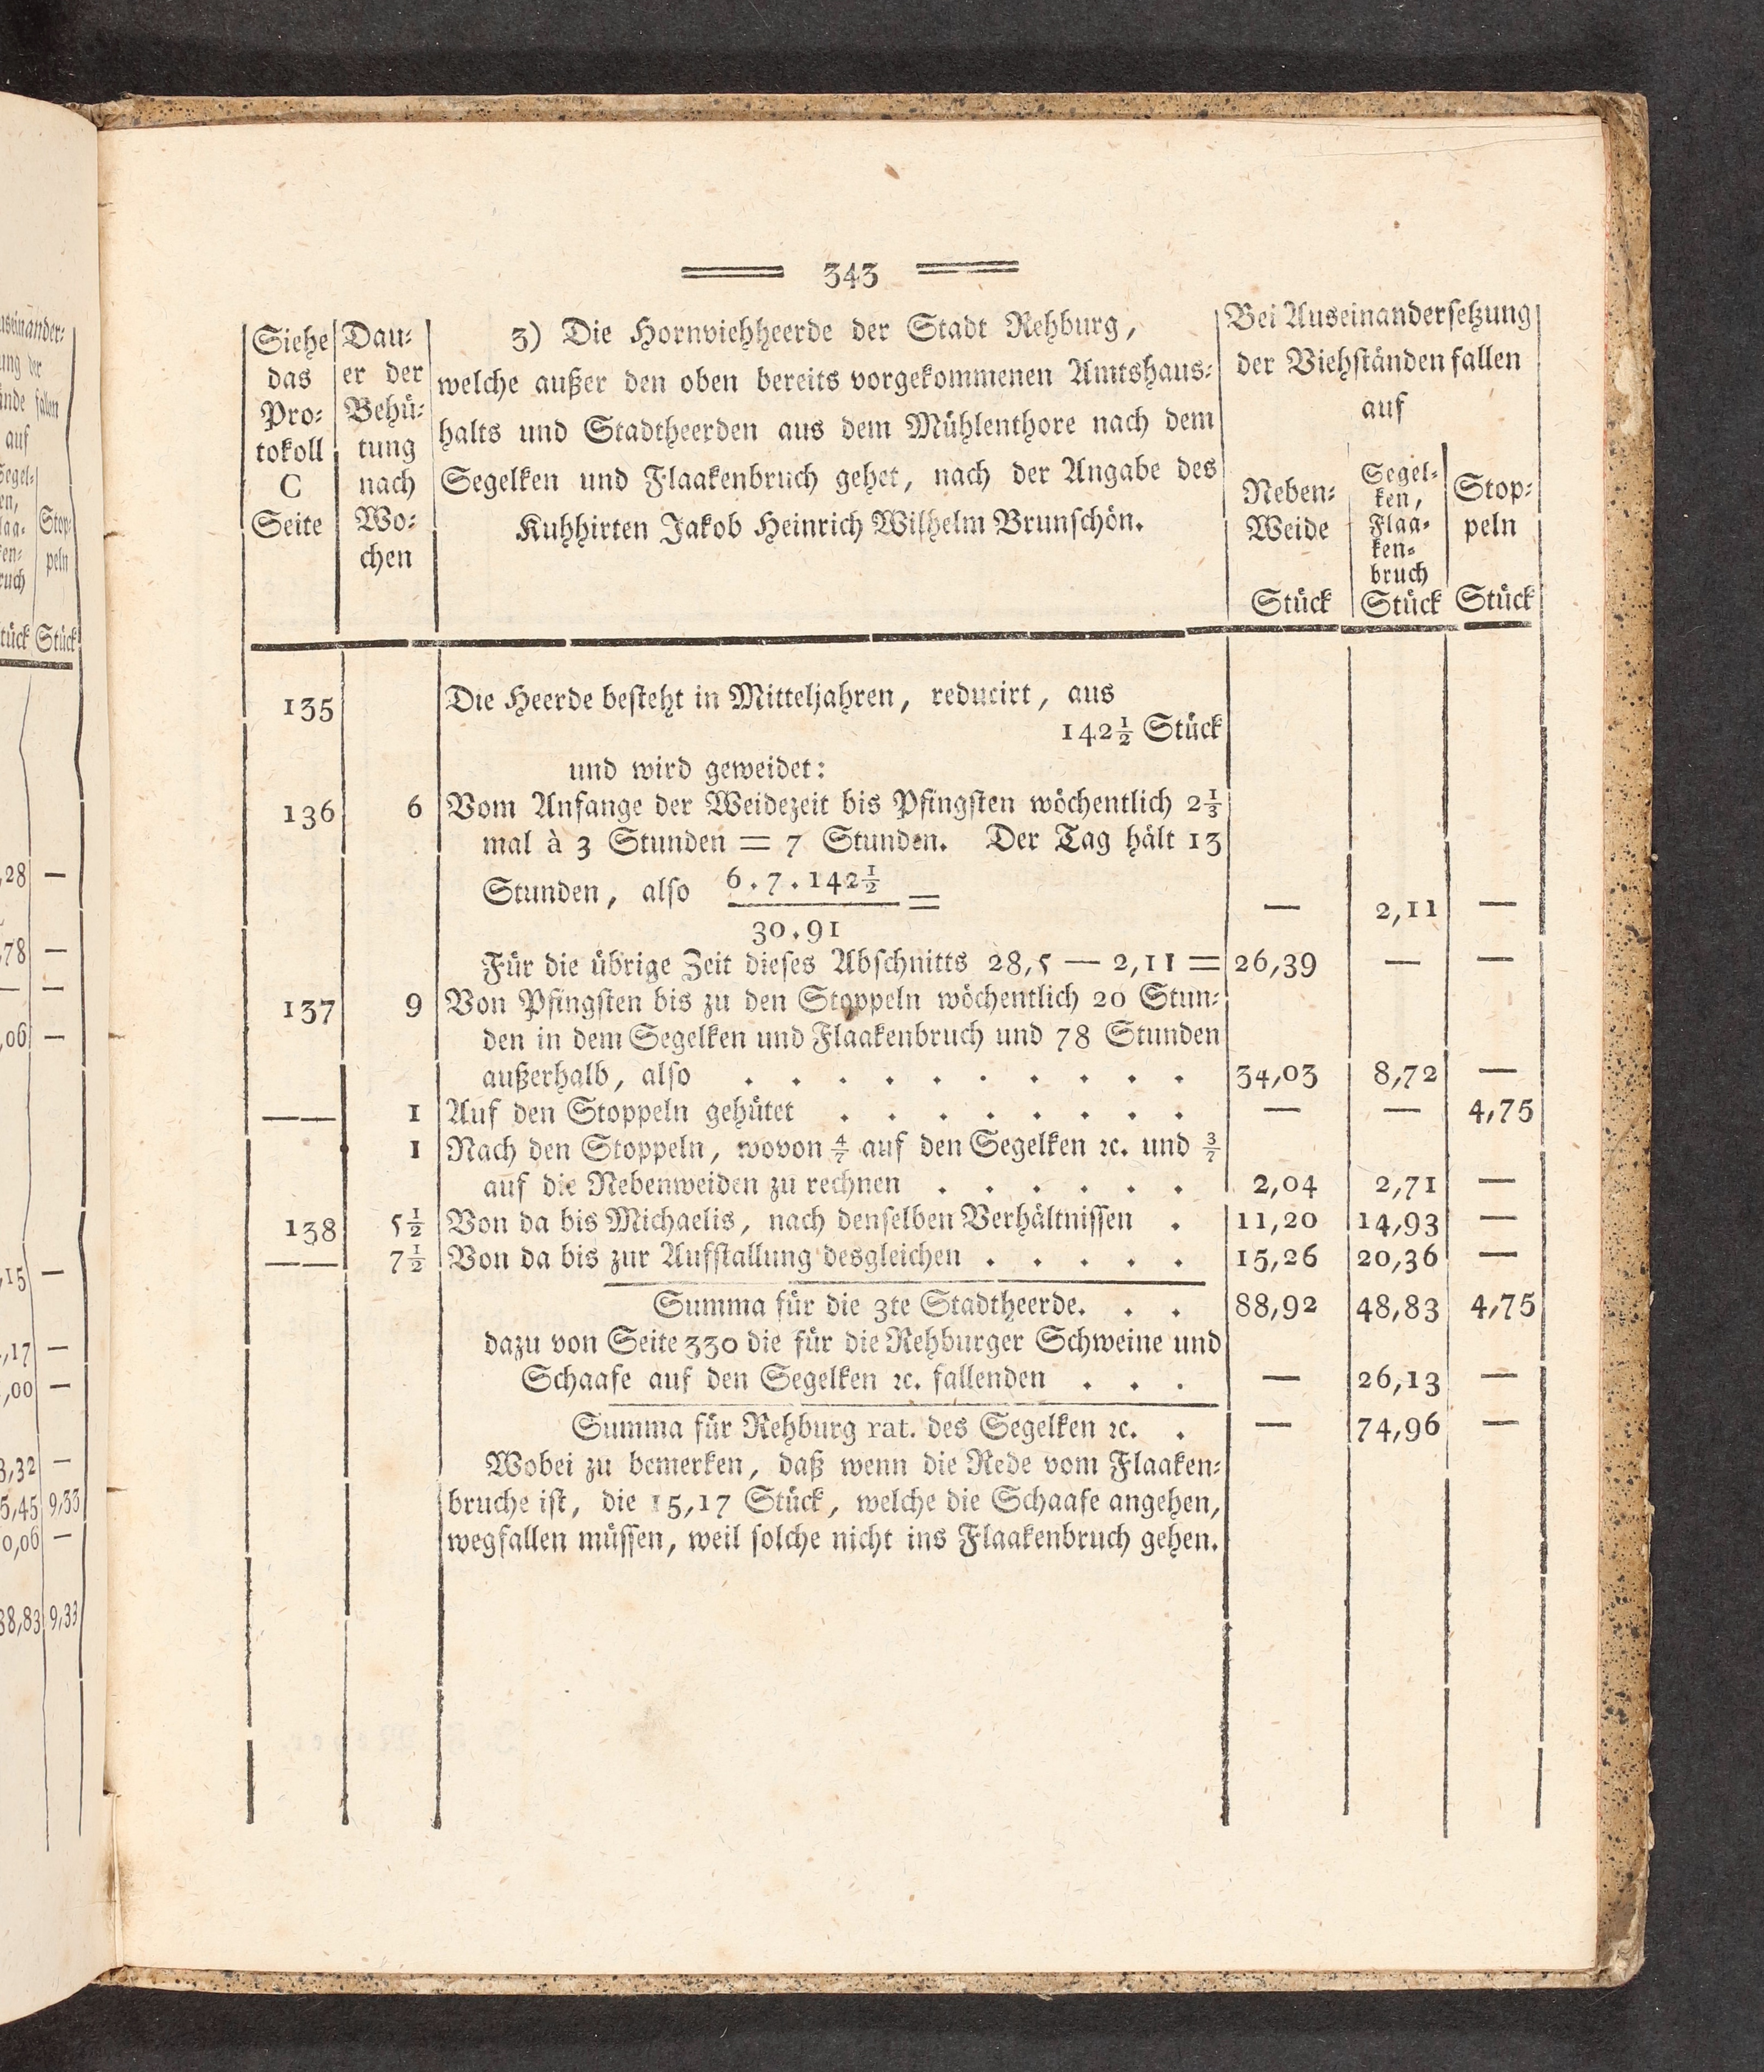 343
Siehe das Protokoll C Seite
Dauer der Behütung nach Wochen
3) Die Hornviehheerde der Stadt Rehburg,
welche außer den oben bereits vorgekommenen Amtshaus-
halts und Stadtheerden aus dem Mühlenthore nach dem
Segelken und Flaakenbruch gehet, nach der Angabe des
Kuhhirten Jakob Heinrich Wilhelm Brunschön.
Bei Auseinandersetzung
der Viehständen fallen
auf
Neben-
Weide
Stück
Segel-
ken,
Flaa-
ken-
bruch
Stück
Stop-
peln
Stück
135 Die Heerde besteht in Mitteljahren, reducirt, aus
142½ Stück
und wird geweidet:
136 6 Vom Anfange der Weidezeit bis Pfingsten wöchentlich 2⅓
mal à 3 Stunden = 7 Stunden. Der Tag hält 13
Stunden, also 6.7.142½ = — 2,11 —
30.91
Für die übrige Zeit dieses Abschnitts 28,5 — 2,11 = 26,39 — —
137 9 Von Pfingsten bis zu den Stoppeln wöchentlich 20 Stun-
den in dem Segelken und Flaakenbruch und 78 Stunden
außerhalb, also . . . . . . . . . . 34,03 8,72 —
—— 1 Auf den Stoppeln gehütet . . . . . . . . — — 4,75
1 Nach den Stoppeln, wovon 4/7 auf den Segelken ꝛc. und 3/7
auf die Nebenweiden zu rechnen . . . . . . 2,04 2,71 —
138 5½ Von da bis Michaelis, nach denselben Verhältnissen . 11,20 14,93 —
—— 7½ Von da bis zur Aufstallung desgleichen . . . . . 15,26 20,36 —
Summa für die 3te Stadtheerde. . . 88,92 48,83 4,75
dazu von Seite 330 die für die Rehburger Schweine und
Schaafe auf den Segelken ꝛc. fallenden . . . — 26,13 —
Summa für Rehburg rat. des Segelken ꝛc. . — 74,96 —
Wobei zu bemerken, daß wenn die Rede vom Flaaken-
bruche ist, die 15,17 Stück, welche die Schaafe angehen,
wegfallen müssen, weil solche nicht ins Flaakenbruch gehen.